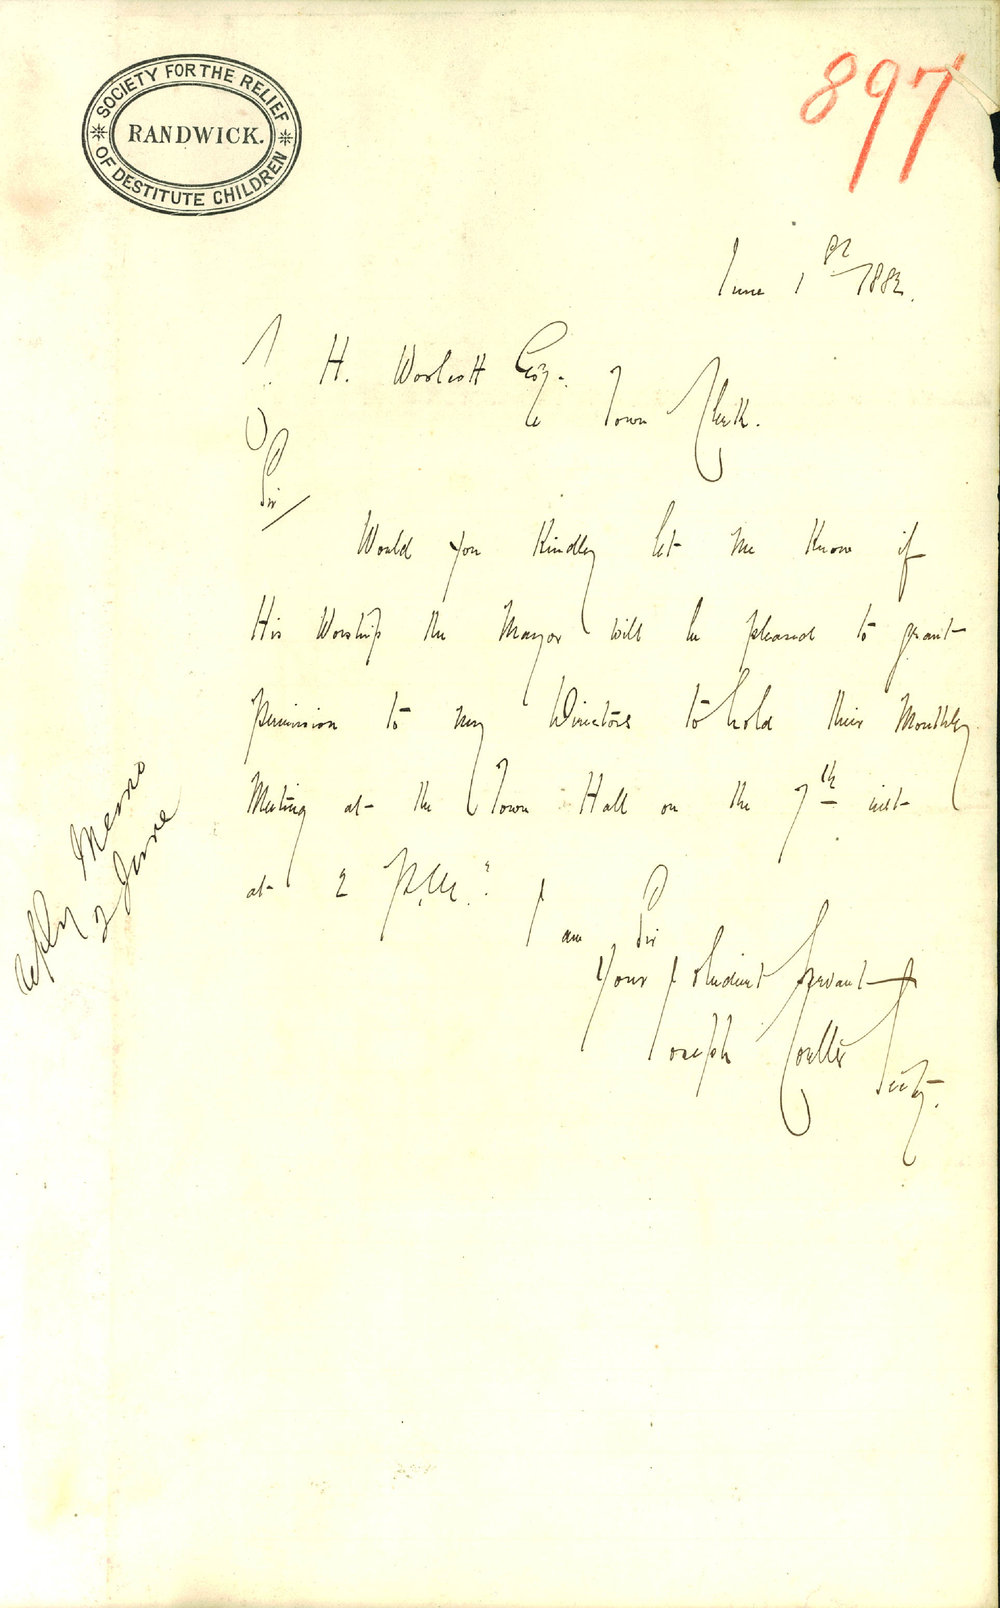 SOCIETY FOR THE RELIEF
OF DESTITUTE CHILDREN
RANDWICK.
897
June 1st 1882.
H. Woolcott Esq.
Town Clerk.
Sir
Would you Kindly let me Know if
His Worship the Mayor will be pleased to grant
permission to my Directors to hold their Monthly
Meeting at the Town Hall on the 7th inst
at 2 P.M.?
I am Sir
Your Obedient Servant
Joseph Coulter Secty.
reply Memo
2 June